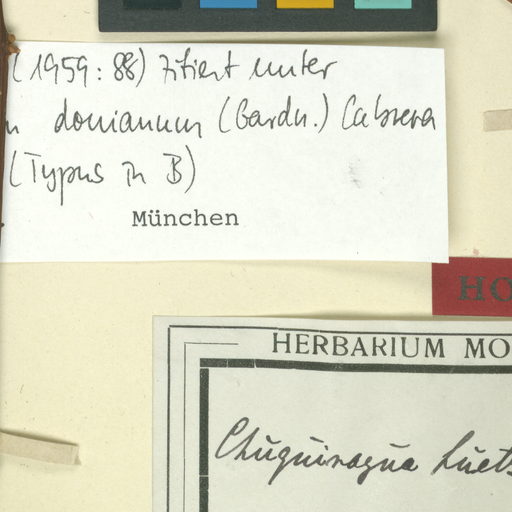 (1959: 88) zitiert unter
donianum (Gardn.) Cabrera
(Typus in B)
München
HO
HERBARIUM MO
Chuquiragua Luets